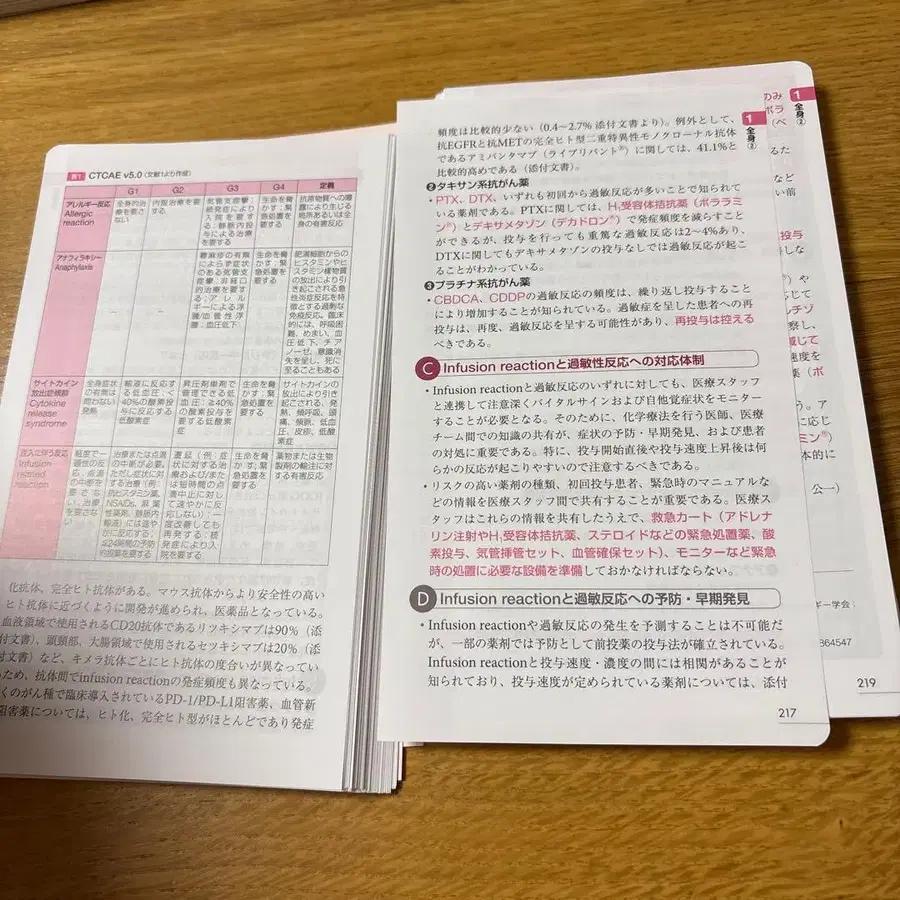 表1 CTCAE v5.0 (文献1より作成)
G1 G2 G3 G4 定義
アレルギー反応
Allergic
reaction
全身的治
療を要さ
ない
内服治療を要
する
気管支痙攣;
続発症により
入院を要す
る;静脈内投
与による治療
を要する
生命を脅
かす;緊
急処置を
要する
抗原物質への曝
露により生じる
局所あるいは全
身の有害反応
アナフィラキシー
Anaphylaxis
–
–
蕁麻疹の有無
によらず症状
のある気管支
痙攣;非経口
的治療を要す
る;アレル
ギーによる浮
腫/血管性浮
腫;血圧低下
生命を脅
かす;緊
急処置を
要する
肥満細胞からの
ヒスタミンやヒ
スタミン様物質
の放出により引
き起こされる急
性炎症反応を特
徴とする過剰な
免疫反応。臨床
的には、呼吸困
難、めまい、血
圧低下、チア
ノーゼ、意識消
失を呈し、死に
至ることもある
サイトカイン
放出症候群
Cytokine
release
syndrome
全身症状
の有無は
問わない
発熱
輸液に反応す
る低血圧;<
40%の酸素投
与に反応する
低酸素症
昇圧剤単剤で
管理できる低
血圧;≧40%
の酸素投与を
要する低酸素
症
生命を脅
かす;緊
急処置を
要する
サイトカインの
放出により引き
起こされる、発
熱、頻呼吸、頭
痛、頻脈、低血
圧、皮疹、低酸
素症
注入に伴う反応
Infusion
related
reaction
軽度で一
過性の反
応;点滴
の中断を
要さな
い;治療
を要さない
治療または点滴
の中断が必要。
ただし症状に対
する治療(例:
抗ヒスタミン薬、
NSAIDs、麻薬
性薬剤、静脈内
輸液)には速や
かに反応する;
≦24時間の予防
的投薬を要する
遷延(例:症
状に対する治
療および/また
は短時間の点
滴中止に対し
て速やかに反
応しない);一
度改善しても
再発する;続
発症により入
院を要する
生命を脅
かす;緊
急処置を
要する
薬物または生物
製剤の輸注に対
する有害反応
化抗体、完全ヒト抗体がある。マウス抗体からより安全性の高い
ヒト抗体に近づくように開発が進められ、医薬品となっている。
血液領域で使用されるCD20抗体であるリツキシマブは90%(添
付文書)、頭頸部、大腸領域で使用されるセツキシマブは20%(添
付文書)など、キメラ抗体ごとにヒト抗体の度合いが異なってい
ため、抗体間でinfusion reactionの発症頻度も異なっている。
くのがん種で臨床導入されているPD-1/PD-L1阻害薬、血管新
阻害薬については、ヒト化、完全ヒト型がほとんどであり発症
頻度は比較的少ない(0.4~2.7% 添付文書より)。例外として、
抗EGFRと抗METの完全ヒト型二重特異性モノクローナル抗体
であるアミバンタマブ(ライブリバント®)に関しては、41.1%と
比較的高めである(添付文書)。
❷タキサン系抗がん薬
・PTX、DTX、いずれも初回から過敏反応が多いことで知られて
いる薬剤である。PTXに関しては、H₁受容体拮抗薬(ポララミ
ン®)とデキサメタゾン(デカドロン®)で発症頻度を減らすこと
ができるが、投与を行っても重篤な過敏反応は2~4%あり、
DTXに関してもデキサメタゾンの投与なしでは過敏反応が起こ
ることがわかっている。
❸プラチナ系抗がん薬
・CBDCA、CDDPの過敏反応の頻度は、繰り返し投与すること
により増加することが知られている。過敏症を呈した患者への再
投与は、再度、過敏反応を呈する可能性があり、再投与は控える
べきである。
C Infusion reactionと過敏性反応への対応体制
・Infusion reactionと過敏反応のいずれに対しても、医療スタッフ
と連携して注意深くバイタルサインおよび自他覚症状をモニター
することが必要となる。そのために、化学療法を行う医師、医療
チーム間での知識の共有が、症状の予防・早期発見、および患者
の対処に重要である。特に、投与開始直後や投与速度上昇後は何
らかの反応が起こりやすいので注意するべきである。
・リスクの高い薬剤の種類、初回投与患者、緊急時のマニュアルな
どの情報を医療スタッフ間で共有することが重要である。医療ス
タッフはこれらの情報を共有したうえで、救急カート(アドレナ
リン注射やH₁受容体拮抗薬、ステロイドなどの緊急処置薬、酸
素投与、気管挿管セット、血管確保セット)、モニターなど緊急
時の処置に必要な設備を準備しておかなければならない。
D Infusion reactionと過敏反応への予防・早期発見
・Infusion reactionや過敏反応の発生を予測することは不可能だ
が、一部の薬剤では予防として前投薬の投与法が確立されている。
Infusion reactionと投与速度・濃度の間には相関があることが
知られており、投与速度が定められている薬剤については、添付
217
1
全身②
1
全身②
のみ
ボラ
(ベ
るた
など
い前
投与
しな
)や
応じて
ルチゾ
察し、
減じて
速度を
薬(ポ
う。ア
に応じ
ミン®)
本的に
公一)
ギー学会:
864547
219